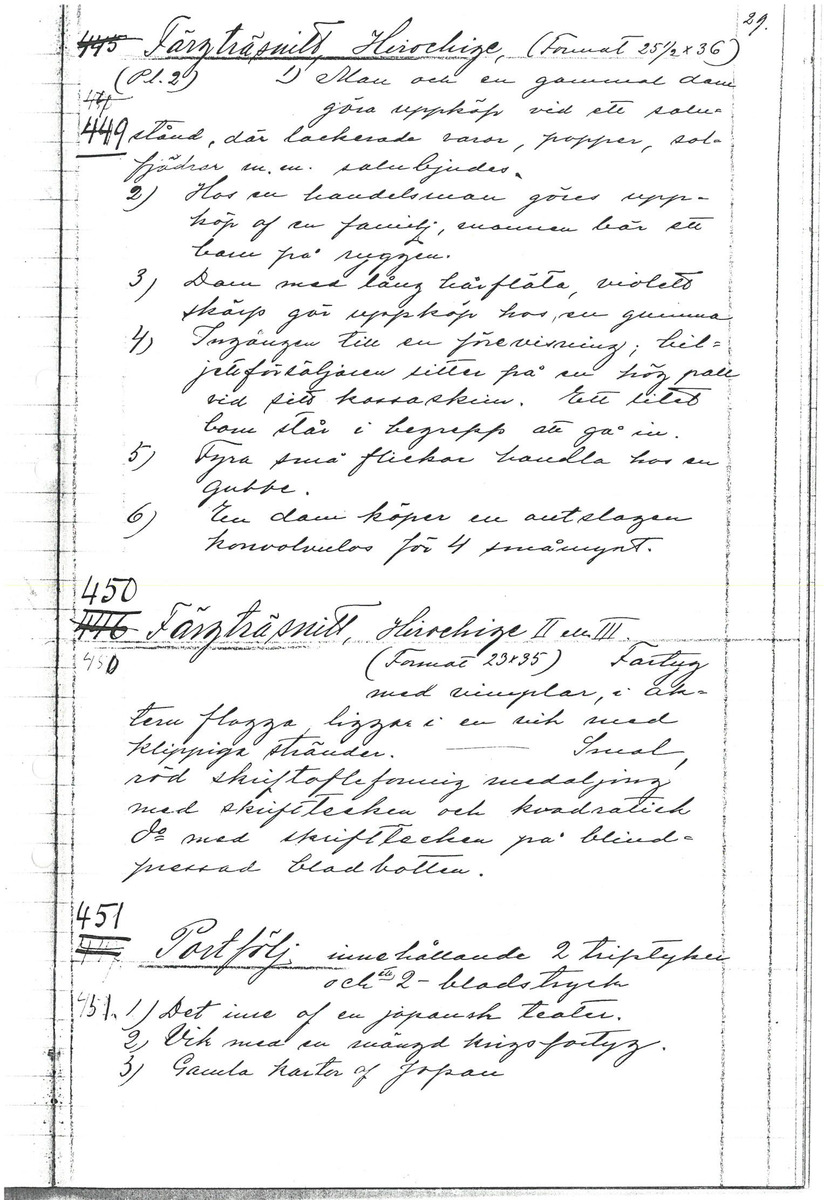 29.
445 Färgträsnitt, Hirochige, (Format 25 1/2 x 36)
(Pl. 2) 1) Man och en gammal dam
göra uppköp vid ett salu-
449 stånd, där lackerade varor, papper, sol-
fjädrar m. m. salubjudes.
2) Hos en handelsman göres upp-
köp af en familj, mannen bär ett
barn på ryggen.
3) Dam med lång hårfläta, violett
skärp gör uppköp hos en gumma
4) Ingången till en förevisning; bil-
jettförsäljaren sitter på en hög pall
vid sitt kassaskrin. Ett litet
barn står i begrepp att gå in.
5) Fyra små flickor handla hos en
gubbe.
6) En dam köper en utslagen
konvolvulos för 4 småmynt.
450
446 Färgträsnitt, Hirochige II eller III.
450 (Format 23 x 35) Fartyg
med vimplar, i ak-
tern flagga, ligger i en vik med
klippiga stränder. — Smal,
röd skrifttafleformig medaljong
med skrifttecken och kvadratisk
do med skrifttecken på blind-
pressad bladbotten.
451
447 Portfölj, innehållande 2 triptyker
och ett 2-bladstryck
451. 1) Det inre af en japansk teater.
2) Vik med en mängd krigsfartyg.
3) Gamla kartor af Japan